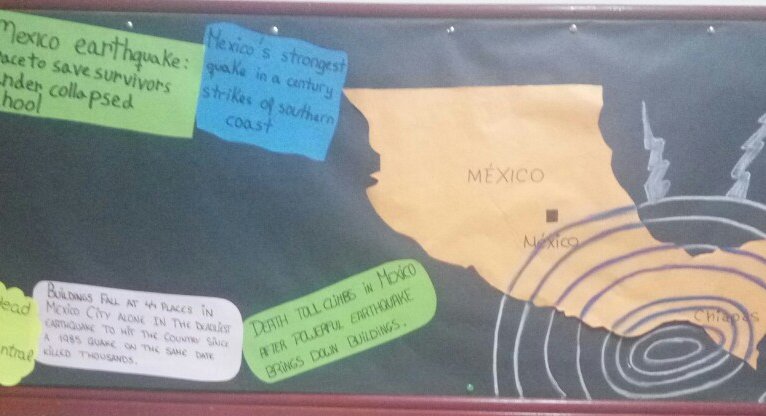 Mexico earthquake:
to save survivors
collapsed
Mexico's strongest
quake in a century
strikes of southern
coast
MÉXICO
México
Chiapas
BUILDINGS FALL AT 44 PLACES IN
MEXICO CITY ALONE IN THE DEADLIEST
EARTHQUAKE TO HIT THE COUNTRY SINCE
A 1985 QUAKE ON THE SAME DATE
KILLED THOUSANDS.
DEATH TOLL CLIMBS IN MEXICO
AFTER POWERFUL EARTHQUAKE
BRINGS DOWN BUILDINGS.